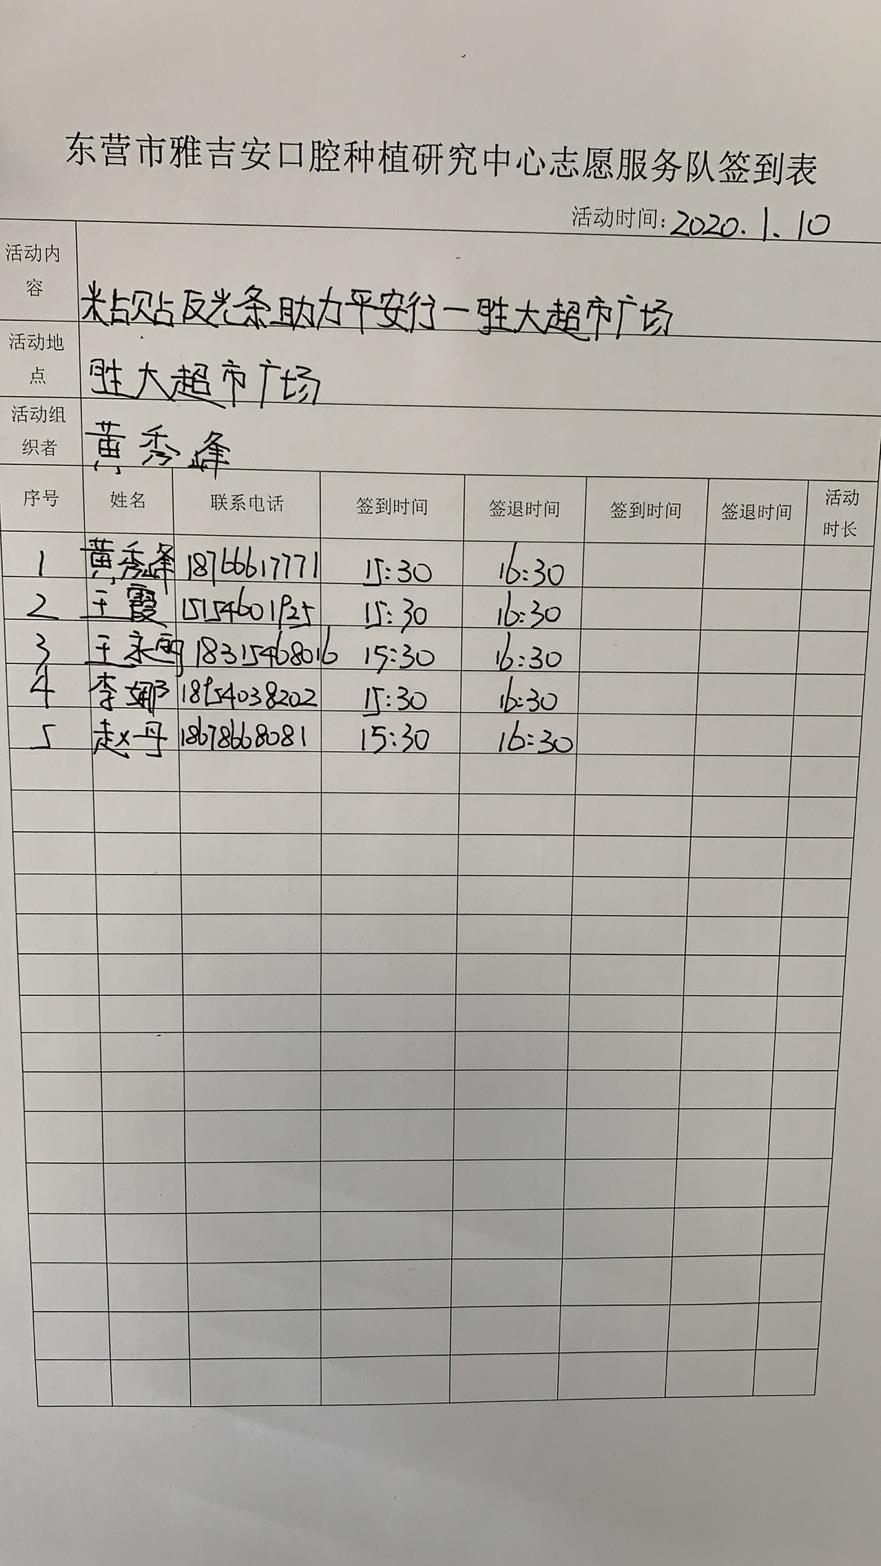 东营市雅吉安口腔种植研究中心志愿服务队签到表
活动时间：2020.1.10
活动内容 粘贴反光条助力平安行一胜大超市广场
活动地点 胜大超市广场
活动组织者 黄秀峰
序号 姓名 联系电话 签到时间 签退时间 签到时间 签退时间 活动时长
1 黄秀峰 18766617771 15:30 16:30
2 王霞 15154601925 15:30 16:30
3 王永 18315468016 15:30 16:30
4 李娜 18954038202 15:30 16:30
5 赵丹 18678668081 15:30 16:30